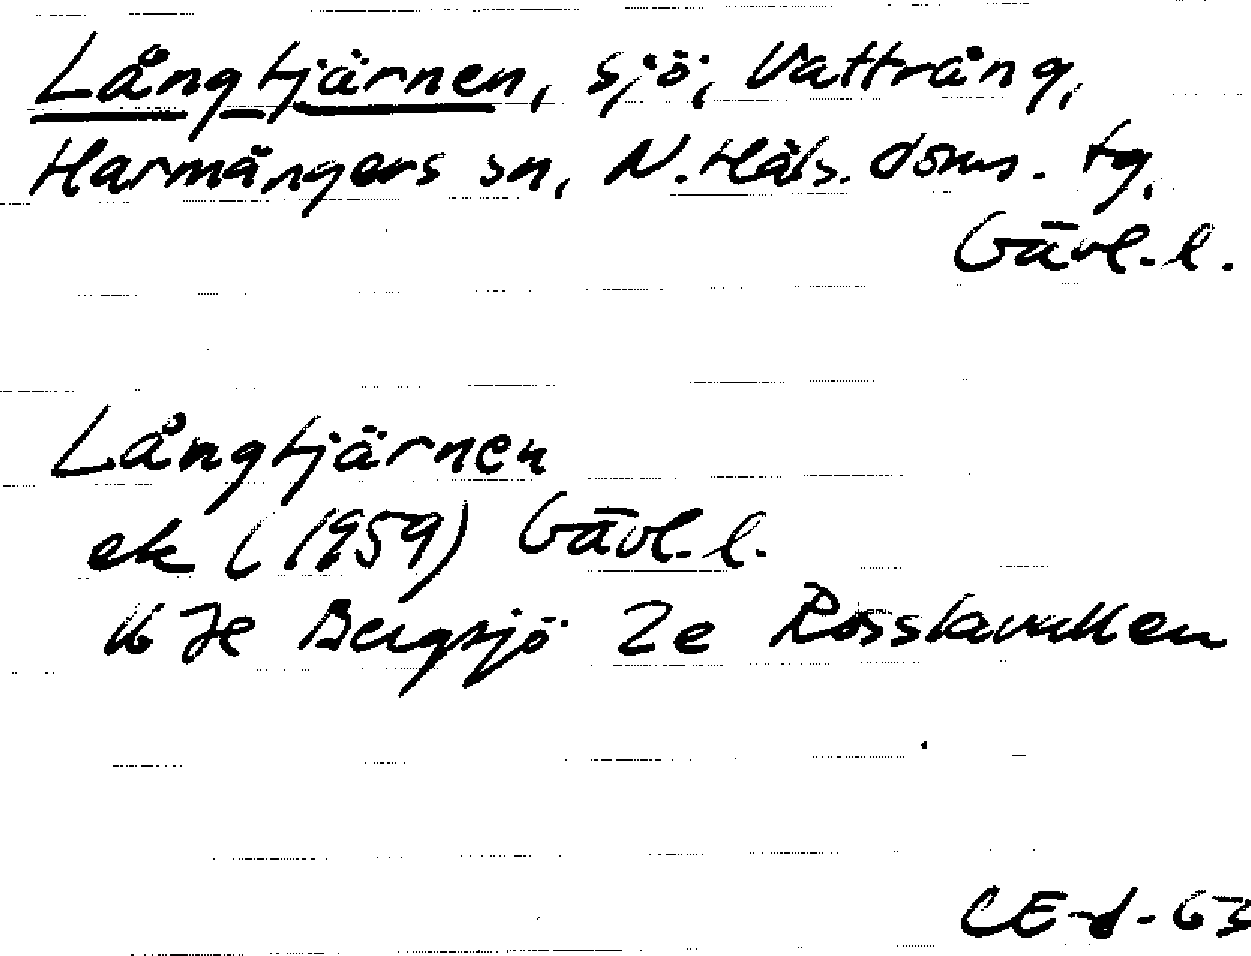 Långtjärnen, sjö, Vattrång,
Harmångers sn, N. Häls. doms. tg.
Gävl. l.
Långtjärnen
ek (1959) Gävl. l.
16 7e Bergsjö 2e Rosslavallen
CE-d-63